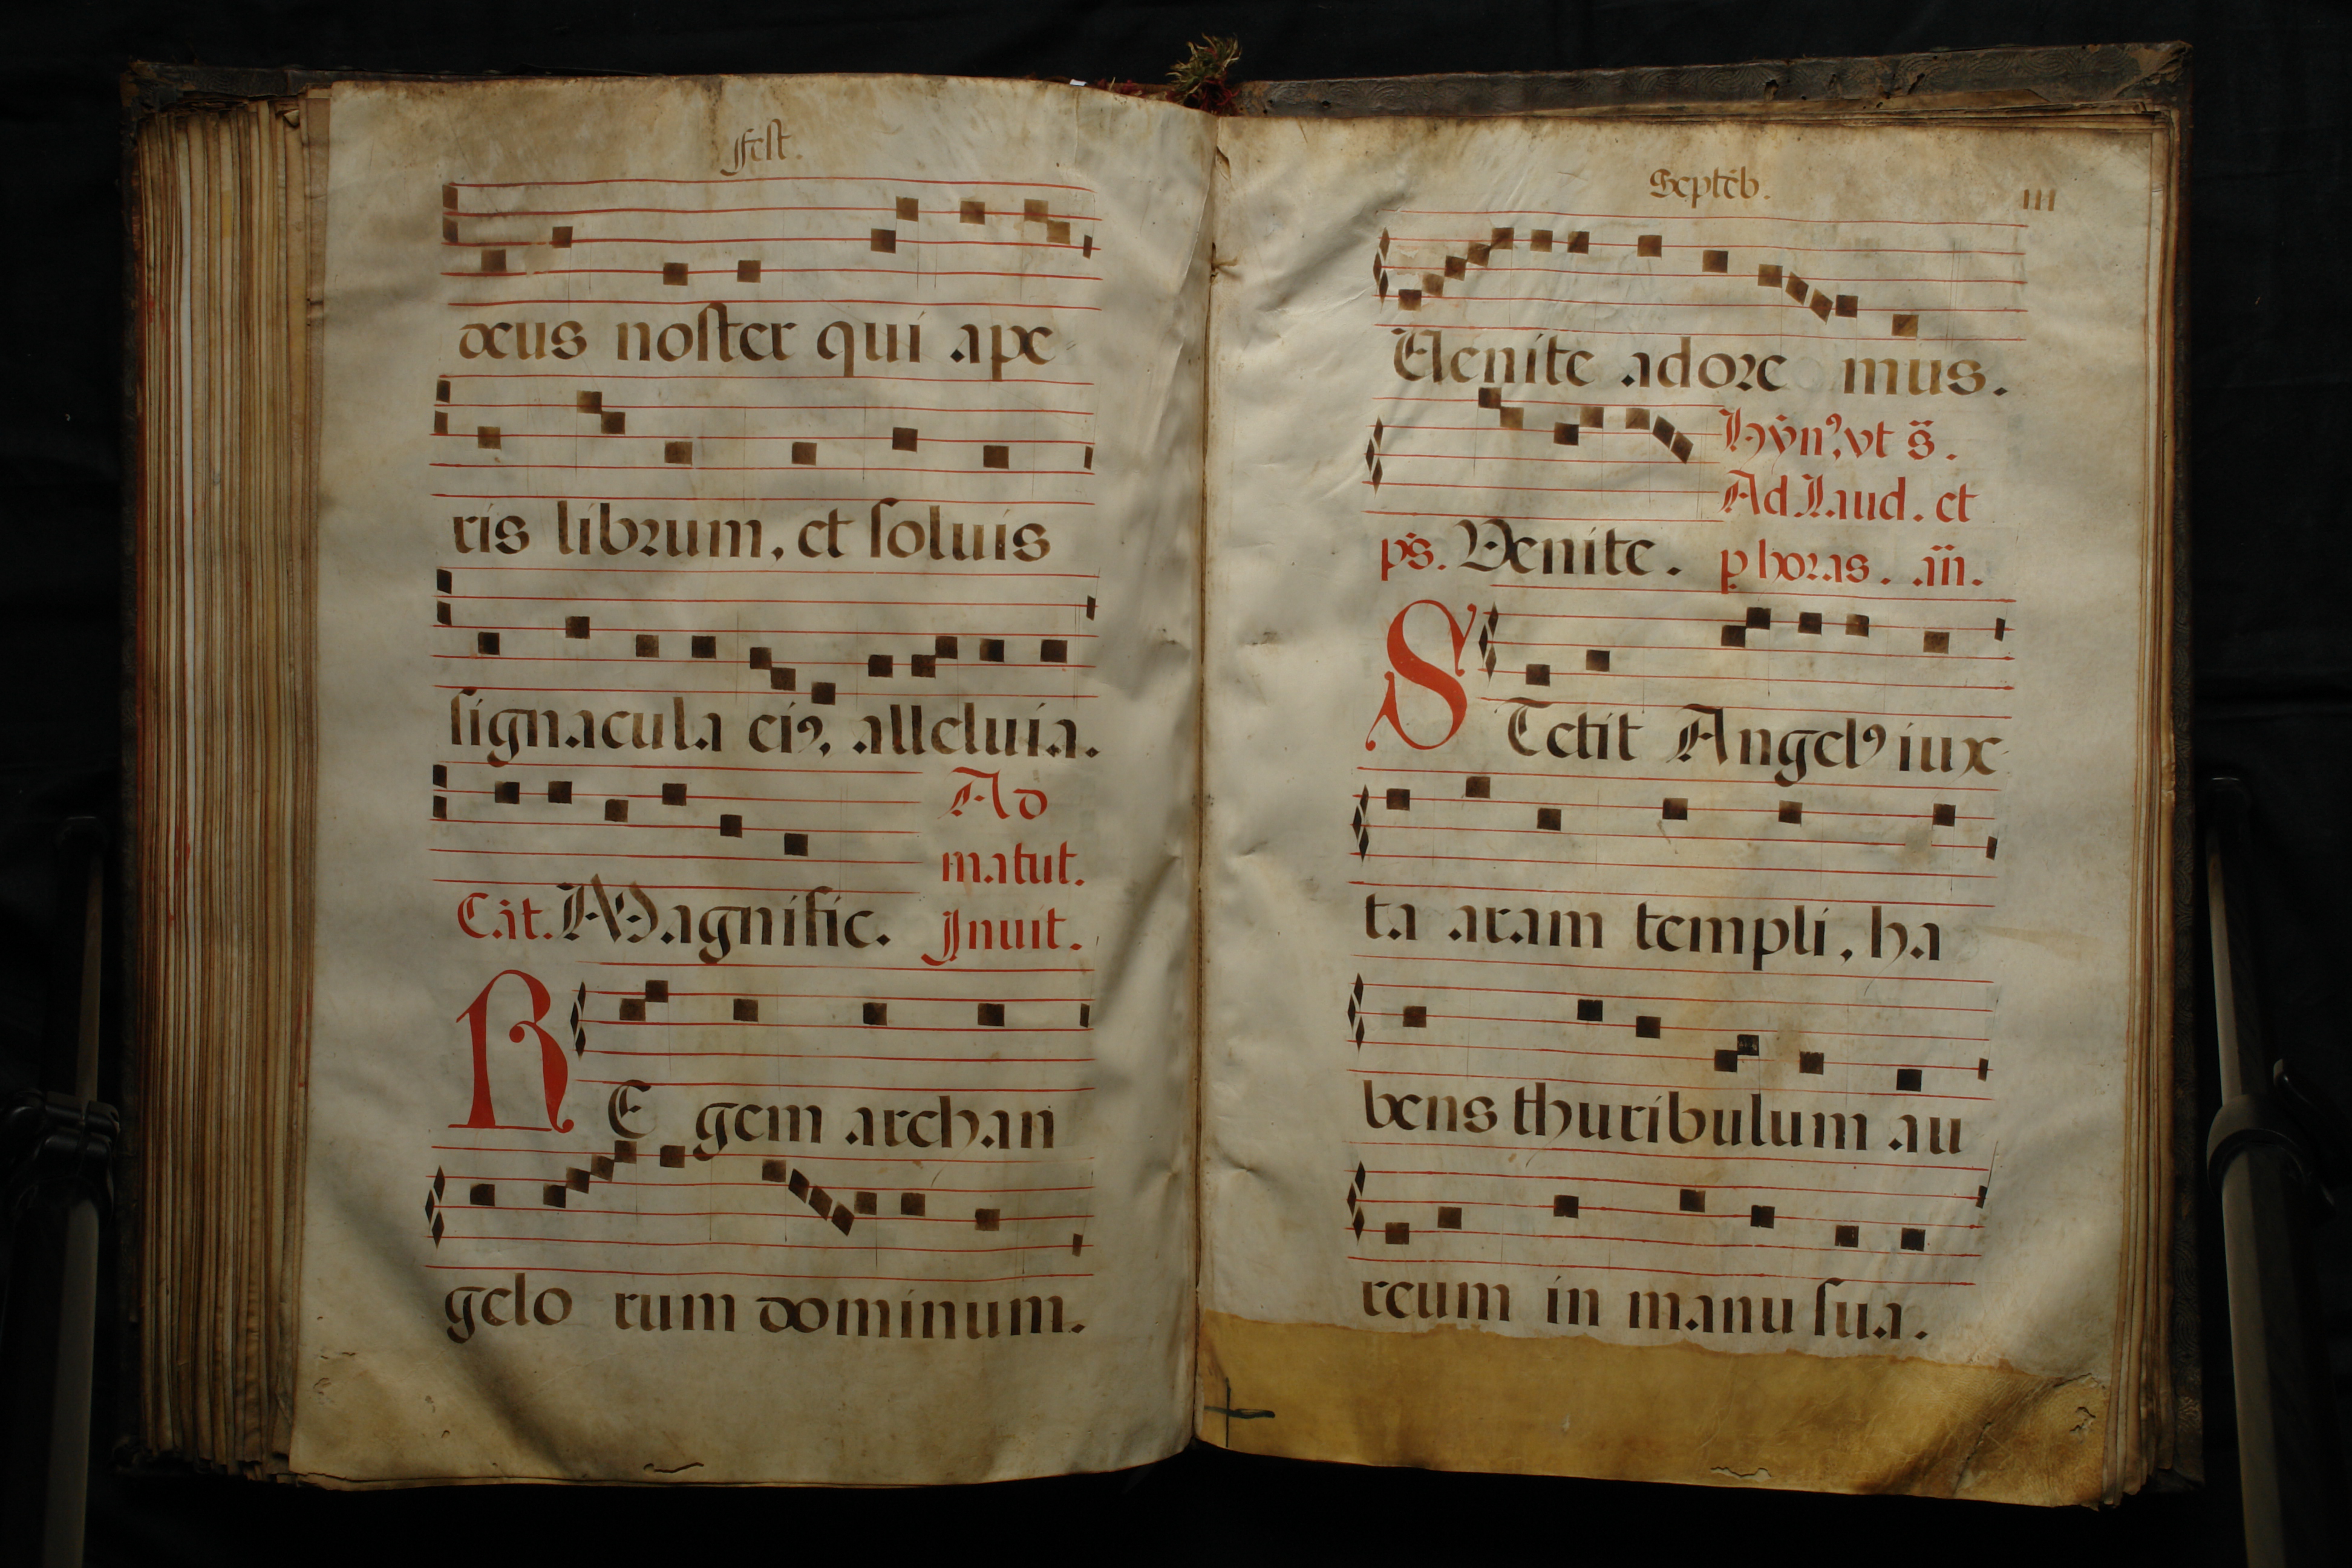 Fest.
deus noster qui ape
ris librum, et soluis
signacula eiꝰ, alleluia.
Ad
matut.
Cāt. Magnific. Inuit.
RE gem archan
gelo rum dominum.
Septēb. III
Uenite adore mus.
Hẏnꝰ, vt s̄.
Ad Laud. et
ps̄. Venite. ꝑ horas. an̄.
STetit Angelꝰ iux
ta aram templi, ha
bens thuribulum au
reum in manu sua.